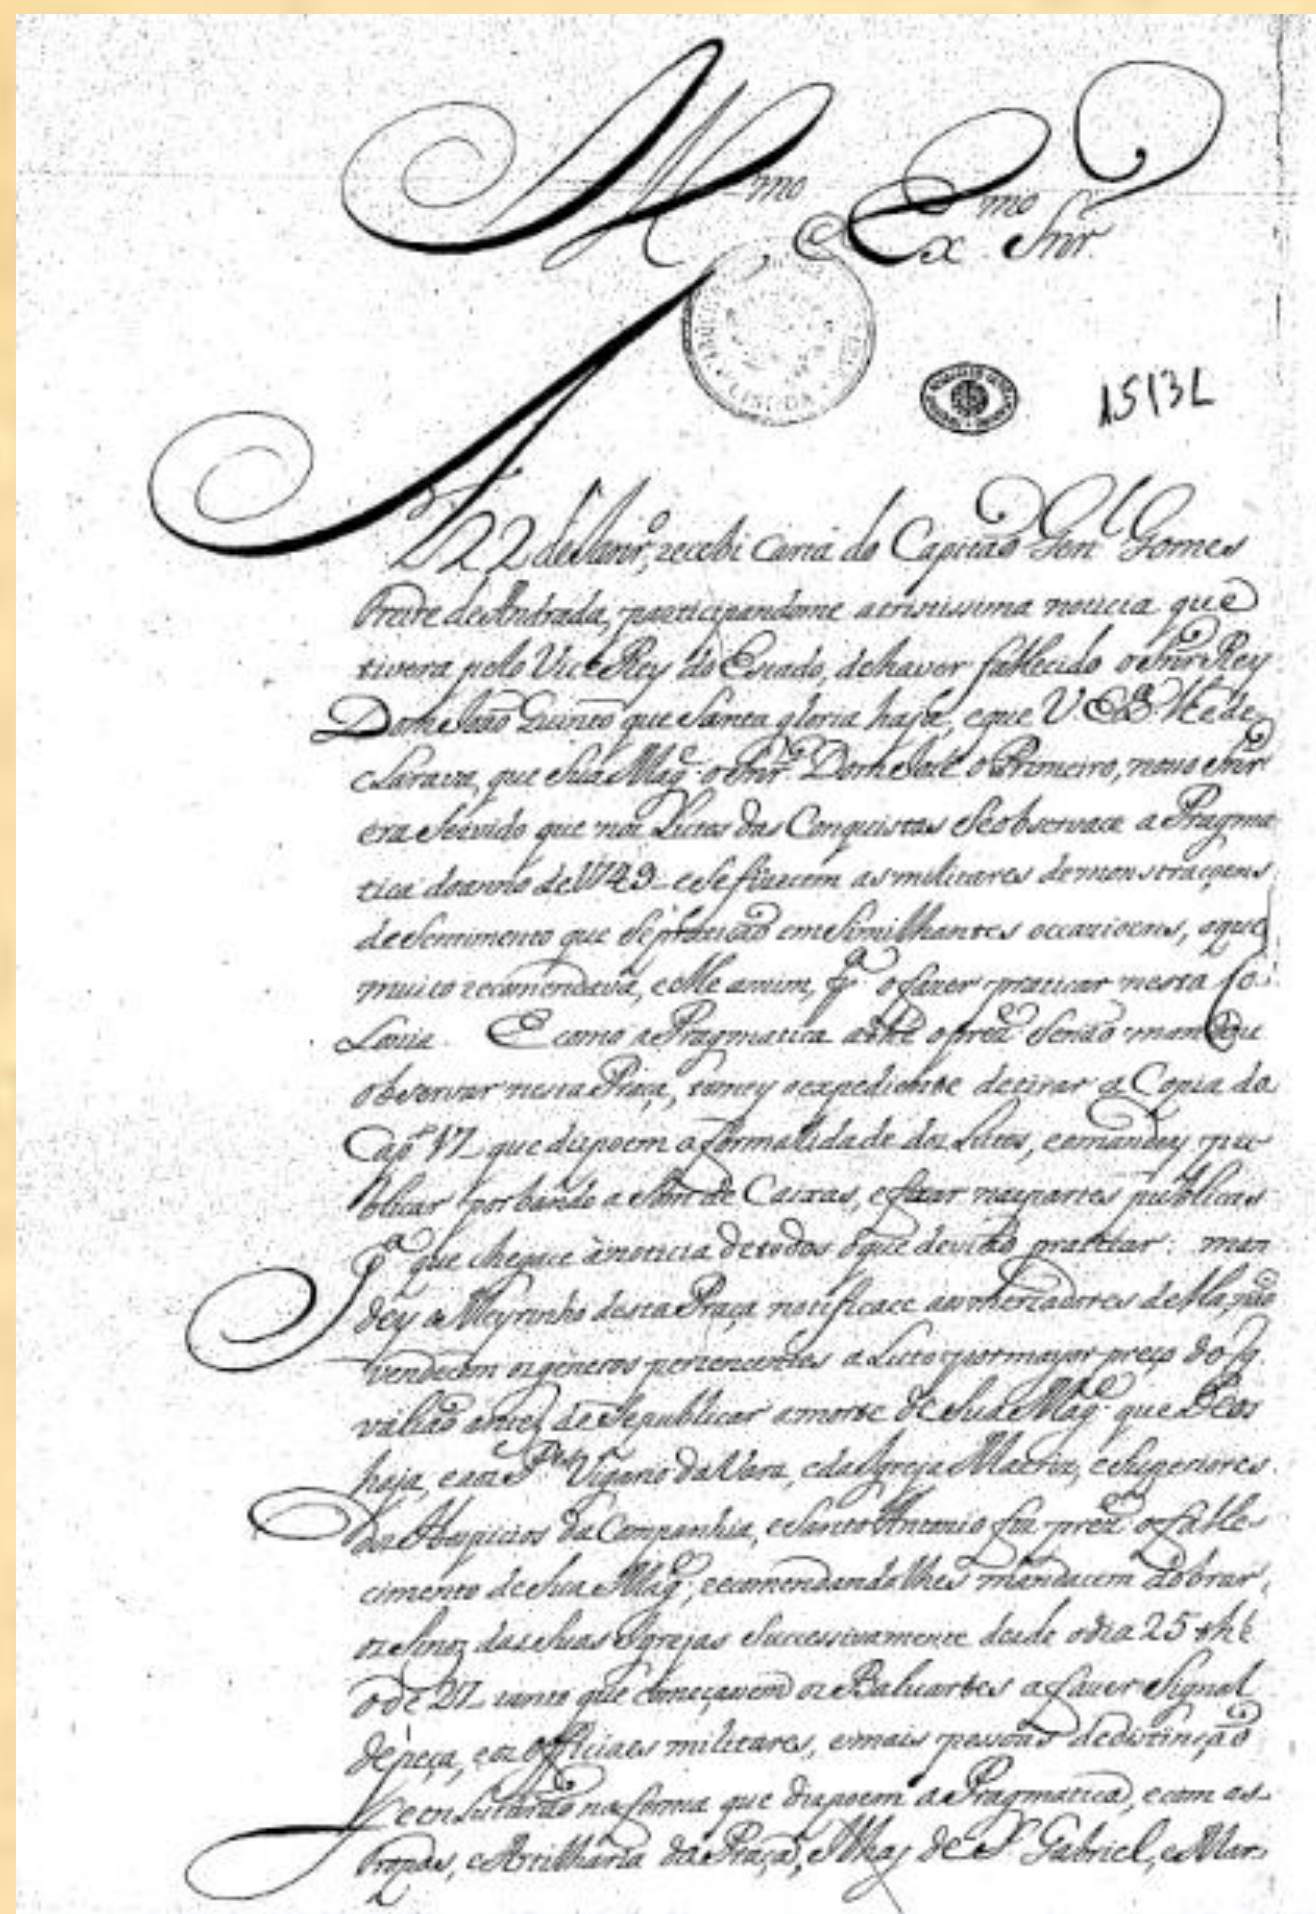 Ill.mo Ex.mo Snr.
LISBOA
15132
A 22 de Janr.o, recebi carta do Capitaõ Gen.al Gomes
Freire de Andrada, participandome a tristissima noticia que
tivera pelo Vice Rey do Estado, de haver fallecido o Snr Rey
Dom Joaõ Quinto que Santa gloria haja, e que V. Ex.a lhe de
clarava, que Sua Mag.e o Snr. Dom José o Primeiro, nosso Snr
era Servido que nos Lutos das Conquistas Se observace a Pragma
tica do anno de 1749 e Se fizecem as militares demonstraçoens
de Sentimento que Se praticaõ em Similhantes occazioens, o que
muito recomendava, e elle a mim, p.a o fazer praticar nesta Co
lonia. E como a Pragmatica athé o prez.e Se naõ mandou
observar nesta Praça, tomey o expediente de tirar a Copia do
Cap.o 17 que dispoem a formalidade dos Lutos, e mandey pu
blicar por bando a Som de Caixas, e fixar nas partes publicas
p.a que chegace à noticia de todos o que deviaõ praticar: man
dey o Meyrinho desta Praça notificace aos mercadores della, naõ
vendecem os géneros pertencentes a Luto por mayor preço do q.
valiaõ antes de Se publicar a morte de Sua Mag.e que Deos
haja, e aos R.dos Vigario da Vara, e da Igreja Matriz, e Superiores
dos Hospicios da Companhia, e Santo Antonio fiz prez.e o falle-
cimento de Sua Mag.e, recomendandolhes mandacem dobrar,
os Sinos das Suas Igrejas Sucessivamente desde o dia 25 athé
o de 27 tanto que começacem os Baluartes a fazer Signal
de peça, e os officiaes militares, e mais pessoas de distinçaõ
Se enlutaraõ na forma que dispoem a Pragmatica, e com as
Tropas, e Artilharia da Praça, Ilhas de S. Gabriel, e Mar